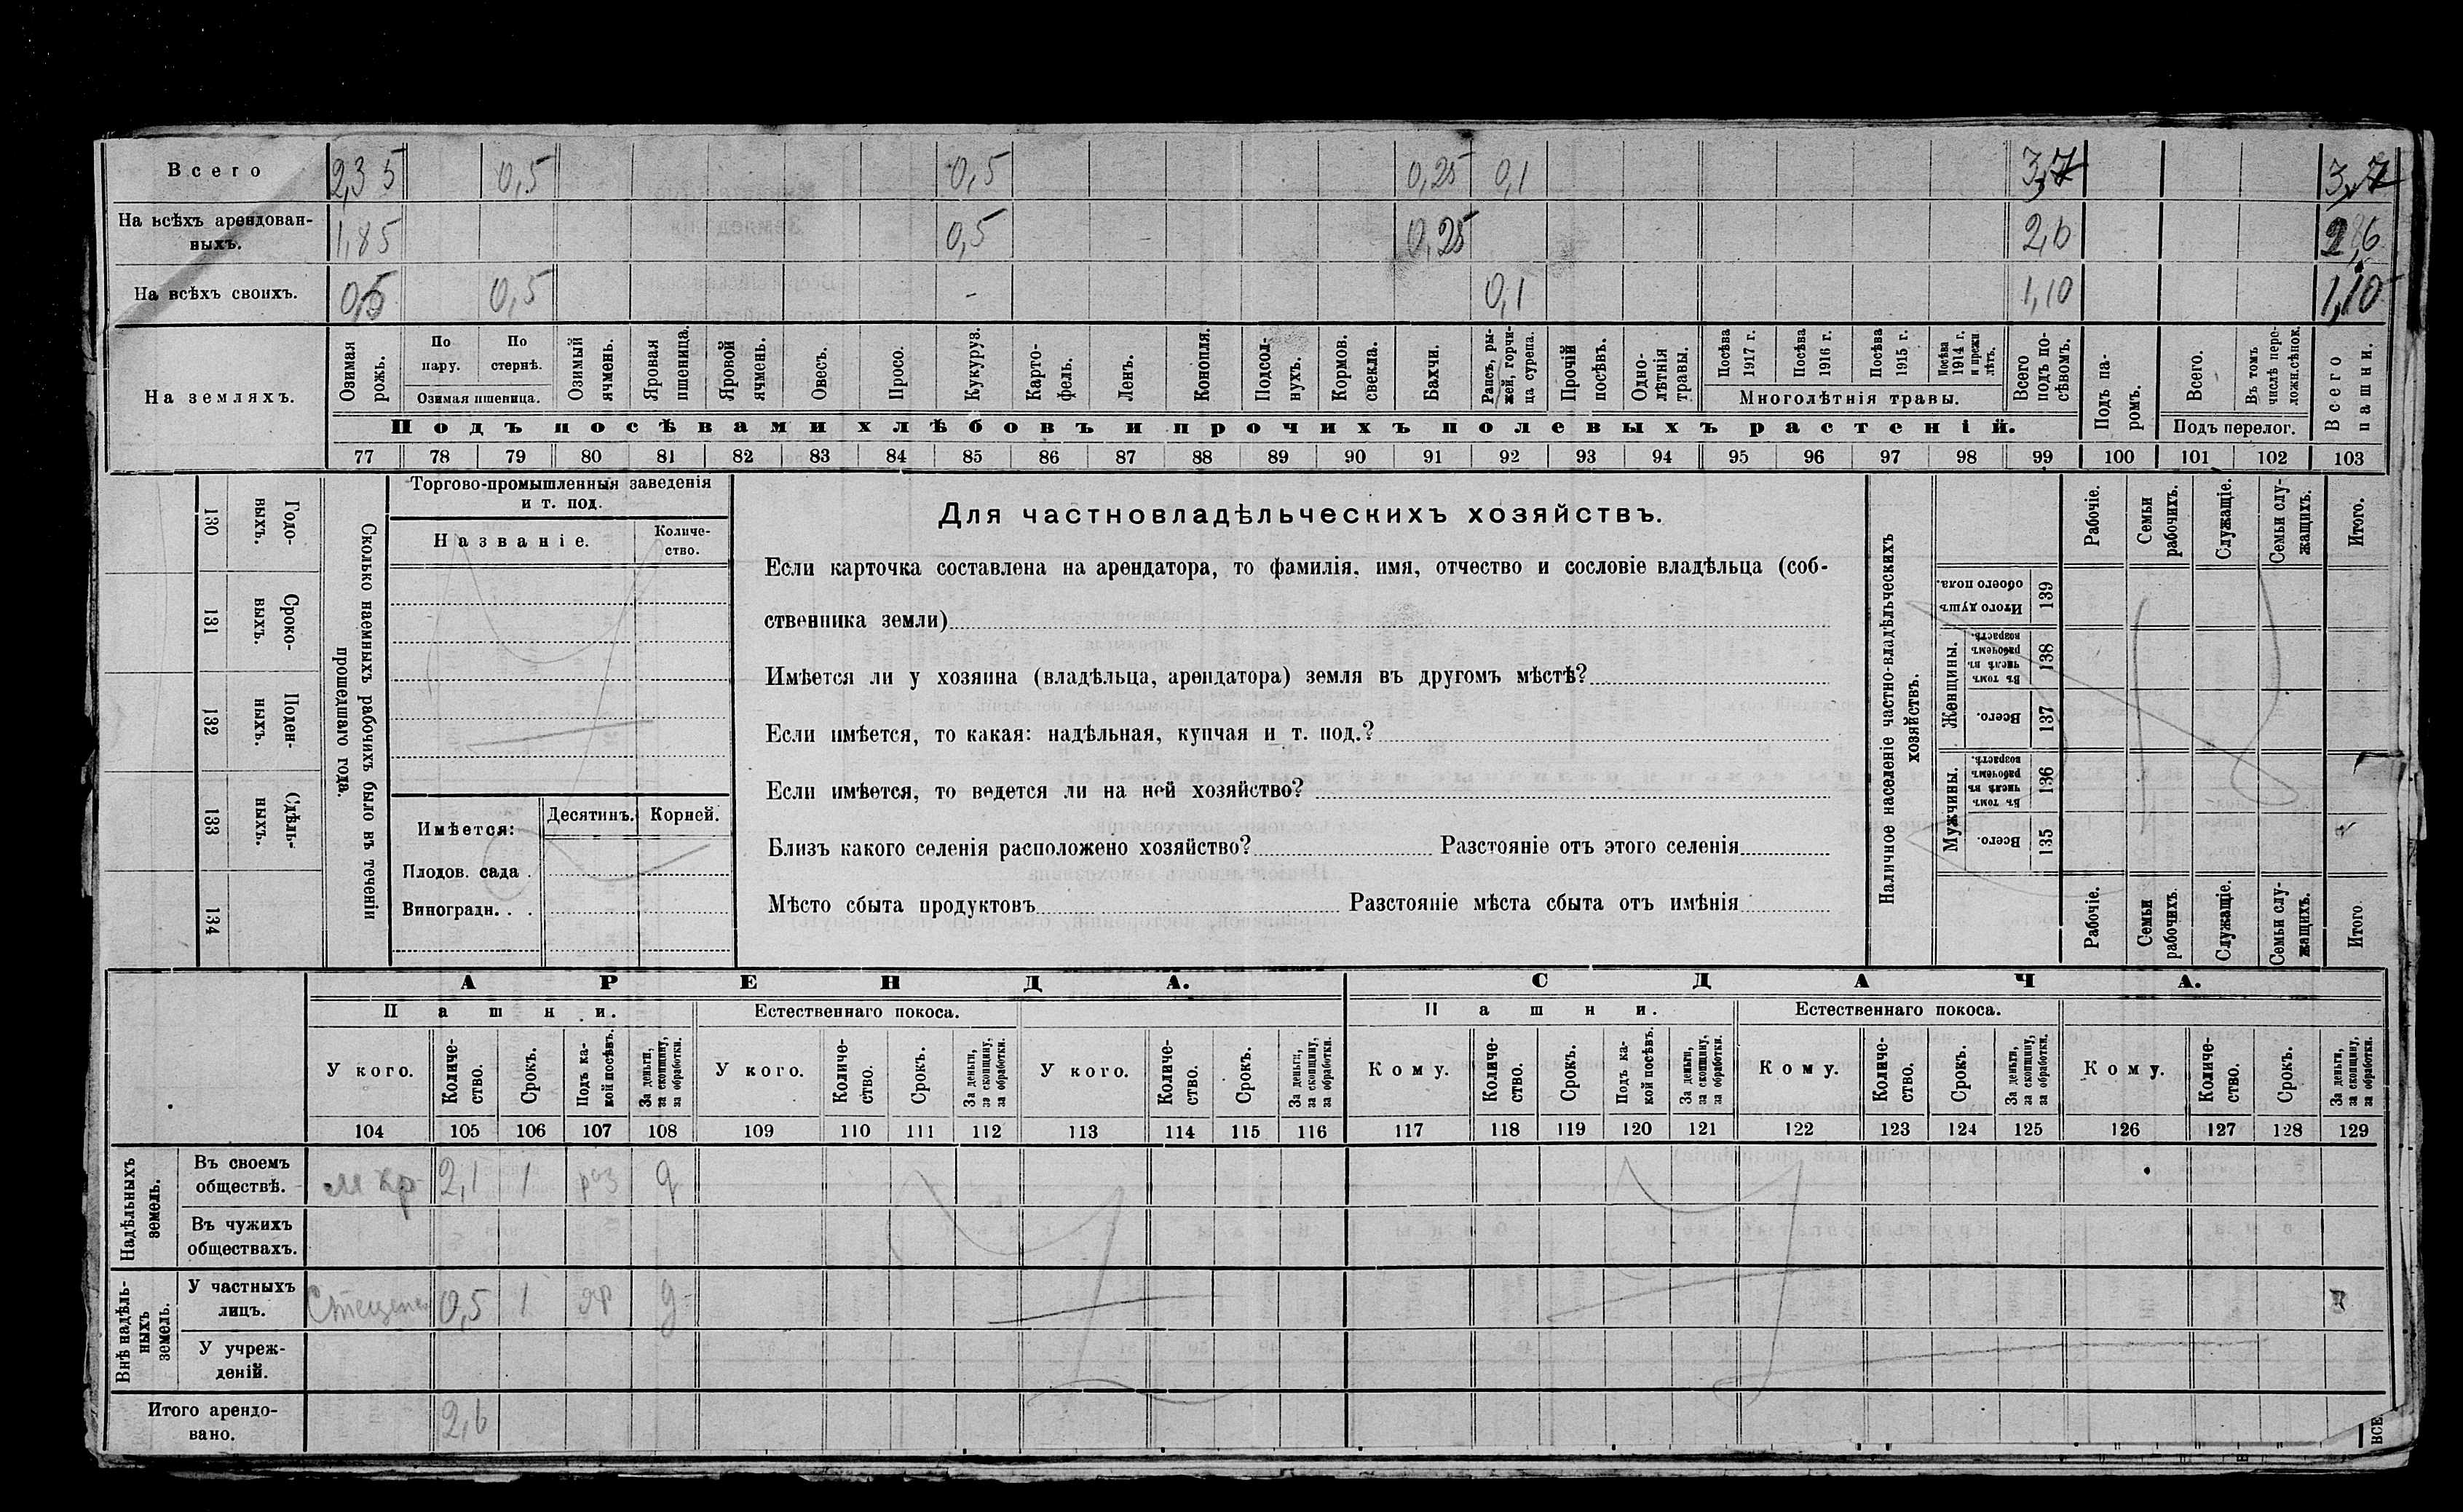 Всего 2,35 0,5 0,5 0,25 0,1 3,7 3,7
На всѣхъ арендован-
ныхъ. 1,85 0,5 0,25 2,6 2,6
На всѣхъ своихъ. 0,5 0,5 - 0,1 1,10 1,10
На земляхъ.
Озимая
рожь.
По
пару.
По
стернѣ.
Озимая пшеница.
Озимый
ячмень.
Яровая
пшеница.
Яровой
ячмень.
Овесъ.
Просо.
Кукуруз.
Карто-
фель.
Ленъ.
Конопля.
Подсол-
нухъ.
Кормов.
свекла.
Бахчи.
Рапсъ, ры-
жей, горчи-
ца сурепа.
Прочій
посѣвъ.
Одно-
лѣтнія
травы.
Посѣва
1917 г.
Посѣва
1916 г.
Посѣва
1915 г.
Посѣва
1914 г.
и прежн
лѣтъ.
Многолѣтнія травы.
Всего
подъ по-
сѣвомъ.
Подъ па-
ромъ.
Всего.
Въ томъ
числѣ пере-
ложн.сѣнок.
Подъ перелог.
Всего
пашни.
Подъ посѣвами хлѣбовъ и прочихъ полевыхъ растеній.
77 78 79 80 81 82 83 84 85 86 87 88 89 90 91 92 93 94 95 96 97 98 99 100 101 102 103
130 Годо-
ныхъ.
131 Сроко-
выхъ.
132 Поден-
ныхъ.
133 Сдѣль-
ныхъ.
134
Сколько наемныхъ рабочихъ было въ теченіи
прошедшаго года.
Торгово-промышленныя заведенія
и т. под.
Названіе.
Количе-
ство.
Имѣется:
Десятинъ. Корней.
Плодов. сада .
Виноградн. . .
Для частновладѣльческихъ хозяйствъ.
Если карточка составлена на арендатора, то фамилія, имя, отчество и сословіе владѣльца (соб-
ственника земли)
Имѣется ли у хозяина (владѣльца, арендатора) земля въ другомъ мѣстѣ?
Если имѣется, то какая: надѣльная, купчая и т. под.?
Если имѣется, то ведется ли на ней хозяйство?
Близъ какого селенія расположено хозяйство? Разстояніе отъ этого селенія
Мѣсто сбыта продуктовъ Разстояніе мѣста сбыта отъ имѣнія
Наличное населеніе частно-владѣльческихъ
хозяйствъ.
Рабочіе.
Семьи
рабочихъ.
Служащіе.
Семьи слу-
жащихъ.
Итого.
Итого душъ
обоего пола.
139
Женщины.
Въ томъ
числѣ въ
рабочемъ
возрастѣ.
138
Всего.
137
Мужчины.
Въ томъ
числѣ въ
рабочемъ
возрастѣ.
136
Всего.
135
Рабочіе.
Семьи
рабочихъ
Служащіе.
Семьи слу-
жащихъ.
Итого.
АРЕНДА. СДАЧА.
Пашни. Естественнаго покоса. Пашни. Естественнаго покоса.
У кого.
Количе-
ство.
Срокъ.
Подъ ка-
кой посѣвъ.
За деньги,
за скопщину,
за обработки.
У кого.
Количе-
ство.
Срокъ.
За деньги,
за скопщину,
за обработки.
У кого.
Количе-
ство.
Срокъ.
За деньги,
за скопщину,
за обработки.
Кому.
Количе-
ство.
Срокъ.
Подъ ка-
кой посѣвъ.
За деньги,
за скопщину,
за обработки.
Кому.
Количе-
ство.
Срокъ.
За деньги,
за скопщину,
за обработки.
Кому.
Количе-
ство.
Срокъ.
За деньги,
за скопщину,
за обработки.
104 105 106 107 108 109 110 111 112 113 114 115 116 117 118 119 120 121 122 123 124 125 126 127 128 129
Надѣльныхъ
земель.
Въ своемъ
обществѣ. 2,1 1 раз д
Въ чужихъ
обществахъ.
Внѣ надѣль-
ныхъ
земель.
У частныхъ
лицъ. 0,5 1 яр д
У учреж-
деній.
Итого арендо-
вано. 2,6
ВСЕ